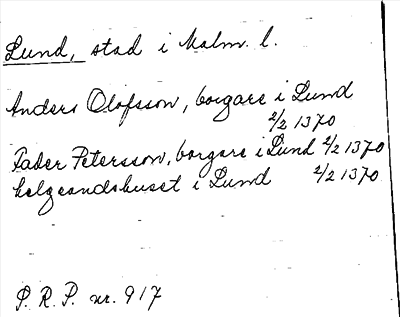 Lund, stad i Malm. l.
Anders Olofsson, borgare i Lund
2/2 1370
Fader Petersson, borgare i Lund 2/2 1370
helgeandshuset i Lund 2/2 1370
P. R. P. nr. 917